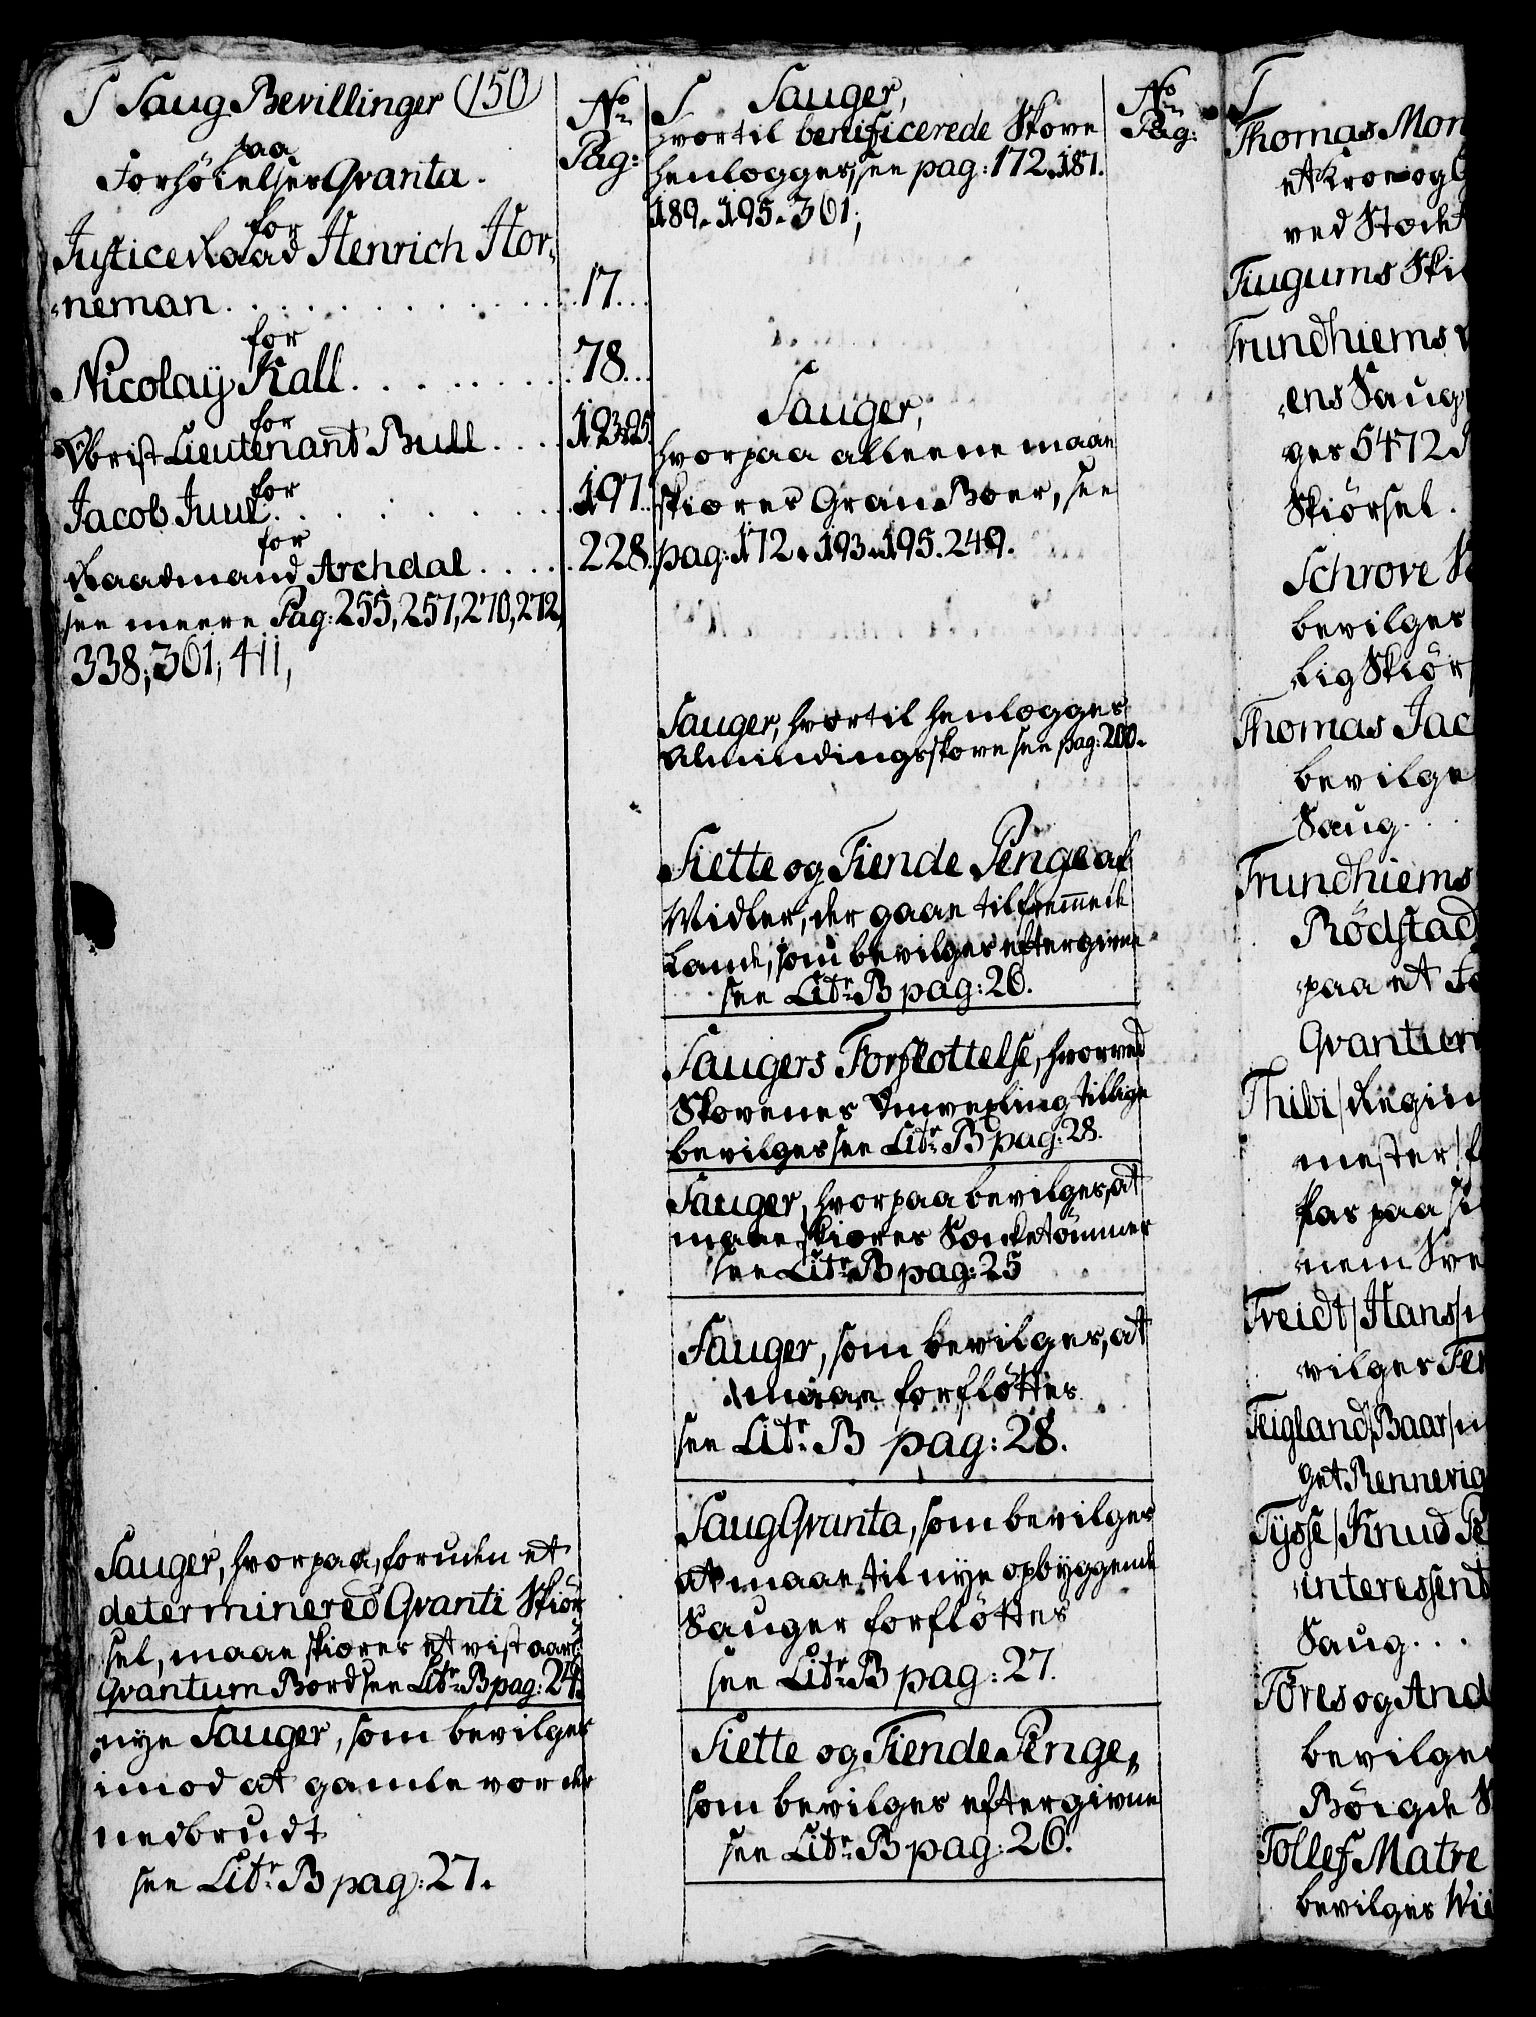 S Saug Bevillinger (150)
paa
Forhöielser Qvanta.
No
Pag:
for
Justice Raad Henrich Hor„
„neman . . . . . 17. . .
for
Nicolaij Kall . . . . . 78. . .
for
Obrist Lieutenant Bull . . . . 193.
for
Jacob Juul . . . . . 197. .
for
Raadmand Archdal . . . . . 228.
see meere Pag: 255, 257, 270, 272,
338, 361, 411,
Sauger, hvorpaa, foruden et
determinered Qvanti Skiör„
sel, maae skiæres et vist aarl:
Qvantum Bord see Litr: B pag: 24.
nye Sauger, som bevilges
imod at gamle vorder
nedbrudt
see Litr: B pag: 27.
S Sauger,
hvortil benificerede Skove
henlægges, see pag: 172. 187.
189. 195. 361;
No
Pag:
Sauger,
hvorpaa alleene maae
skiæres Gran Boer, see
pag: 172. 193. 195. 249.
Sauger, hvortil henlægges
Almindingsskove see pag: 200.
Siette og Tiende Penge af
Widler, der gaae til fremmede
Lande, som bevilges eftergivne
see Litr: B pag: 26.
Saugers Forflöttelse, hvorved
Skovenes Omvexling tillige
bevilges see Litr: B pag: 28.
Sauger, hvorpaa bevilges, at
maae skiæres Sonketömmer
see Litr: B pag: 25
Sauger, som bevilges, at
maae forflöttes
see Litr: B pag: 28.
Saug Qvanta, som bevilges
at maae til nye opbyggende
Sauger forflöttes
see Litr: B pag: 27.
Siette og Tiende Penge,
som bevilges eftergivne
see Litr: B pag: 26.
T
Thomas Mon
et Kroe og
ved Stock
Tiugums Ski
Trundhiems
„ens Saug
ges 5472
Skiörsel.
Schrove
bevilges
lig Skiör
Thomas Jac
bevilge
Saug . . .
Trundhiems
Rödstad
paa et Fo
Qvantum
Thibi / Regim
mester /
kas paa si
nem Sve
Treidt / Hans /
vilges
Teigland / Baar /
get Rennerig
Tysse / Knud
interessent
Saug . . .
Töres og And
bevilge
Böigde
Tollef Matre
bevilges Wii